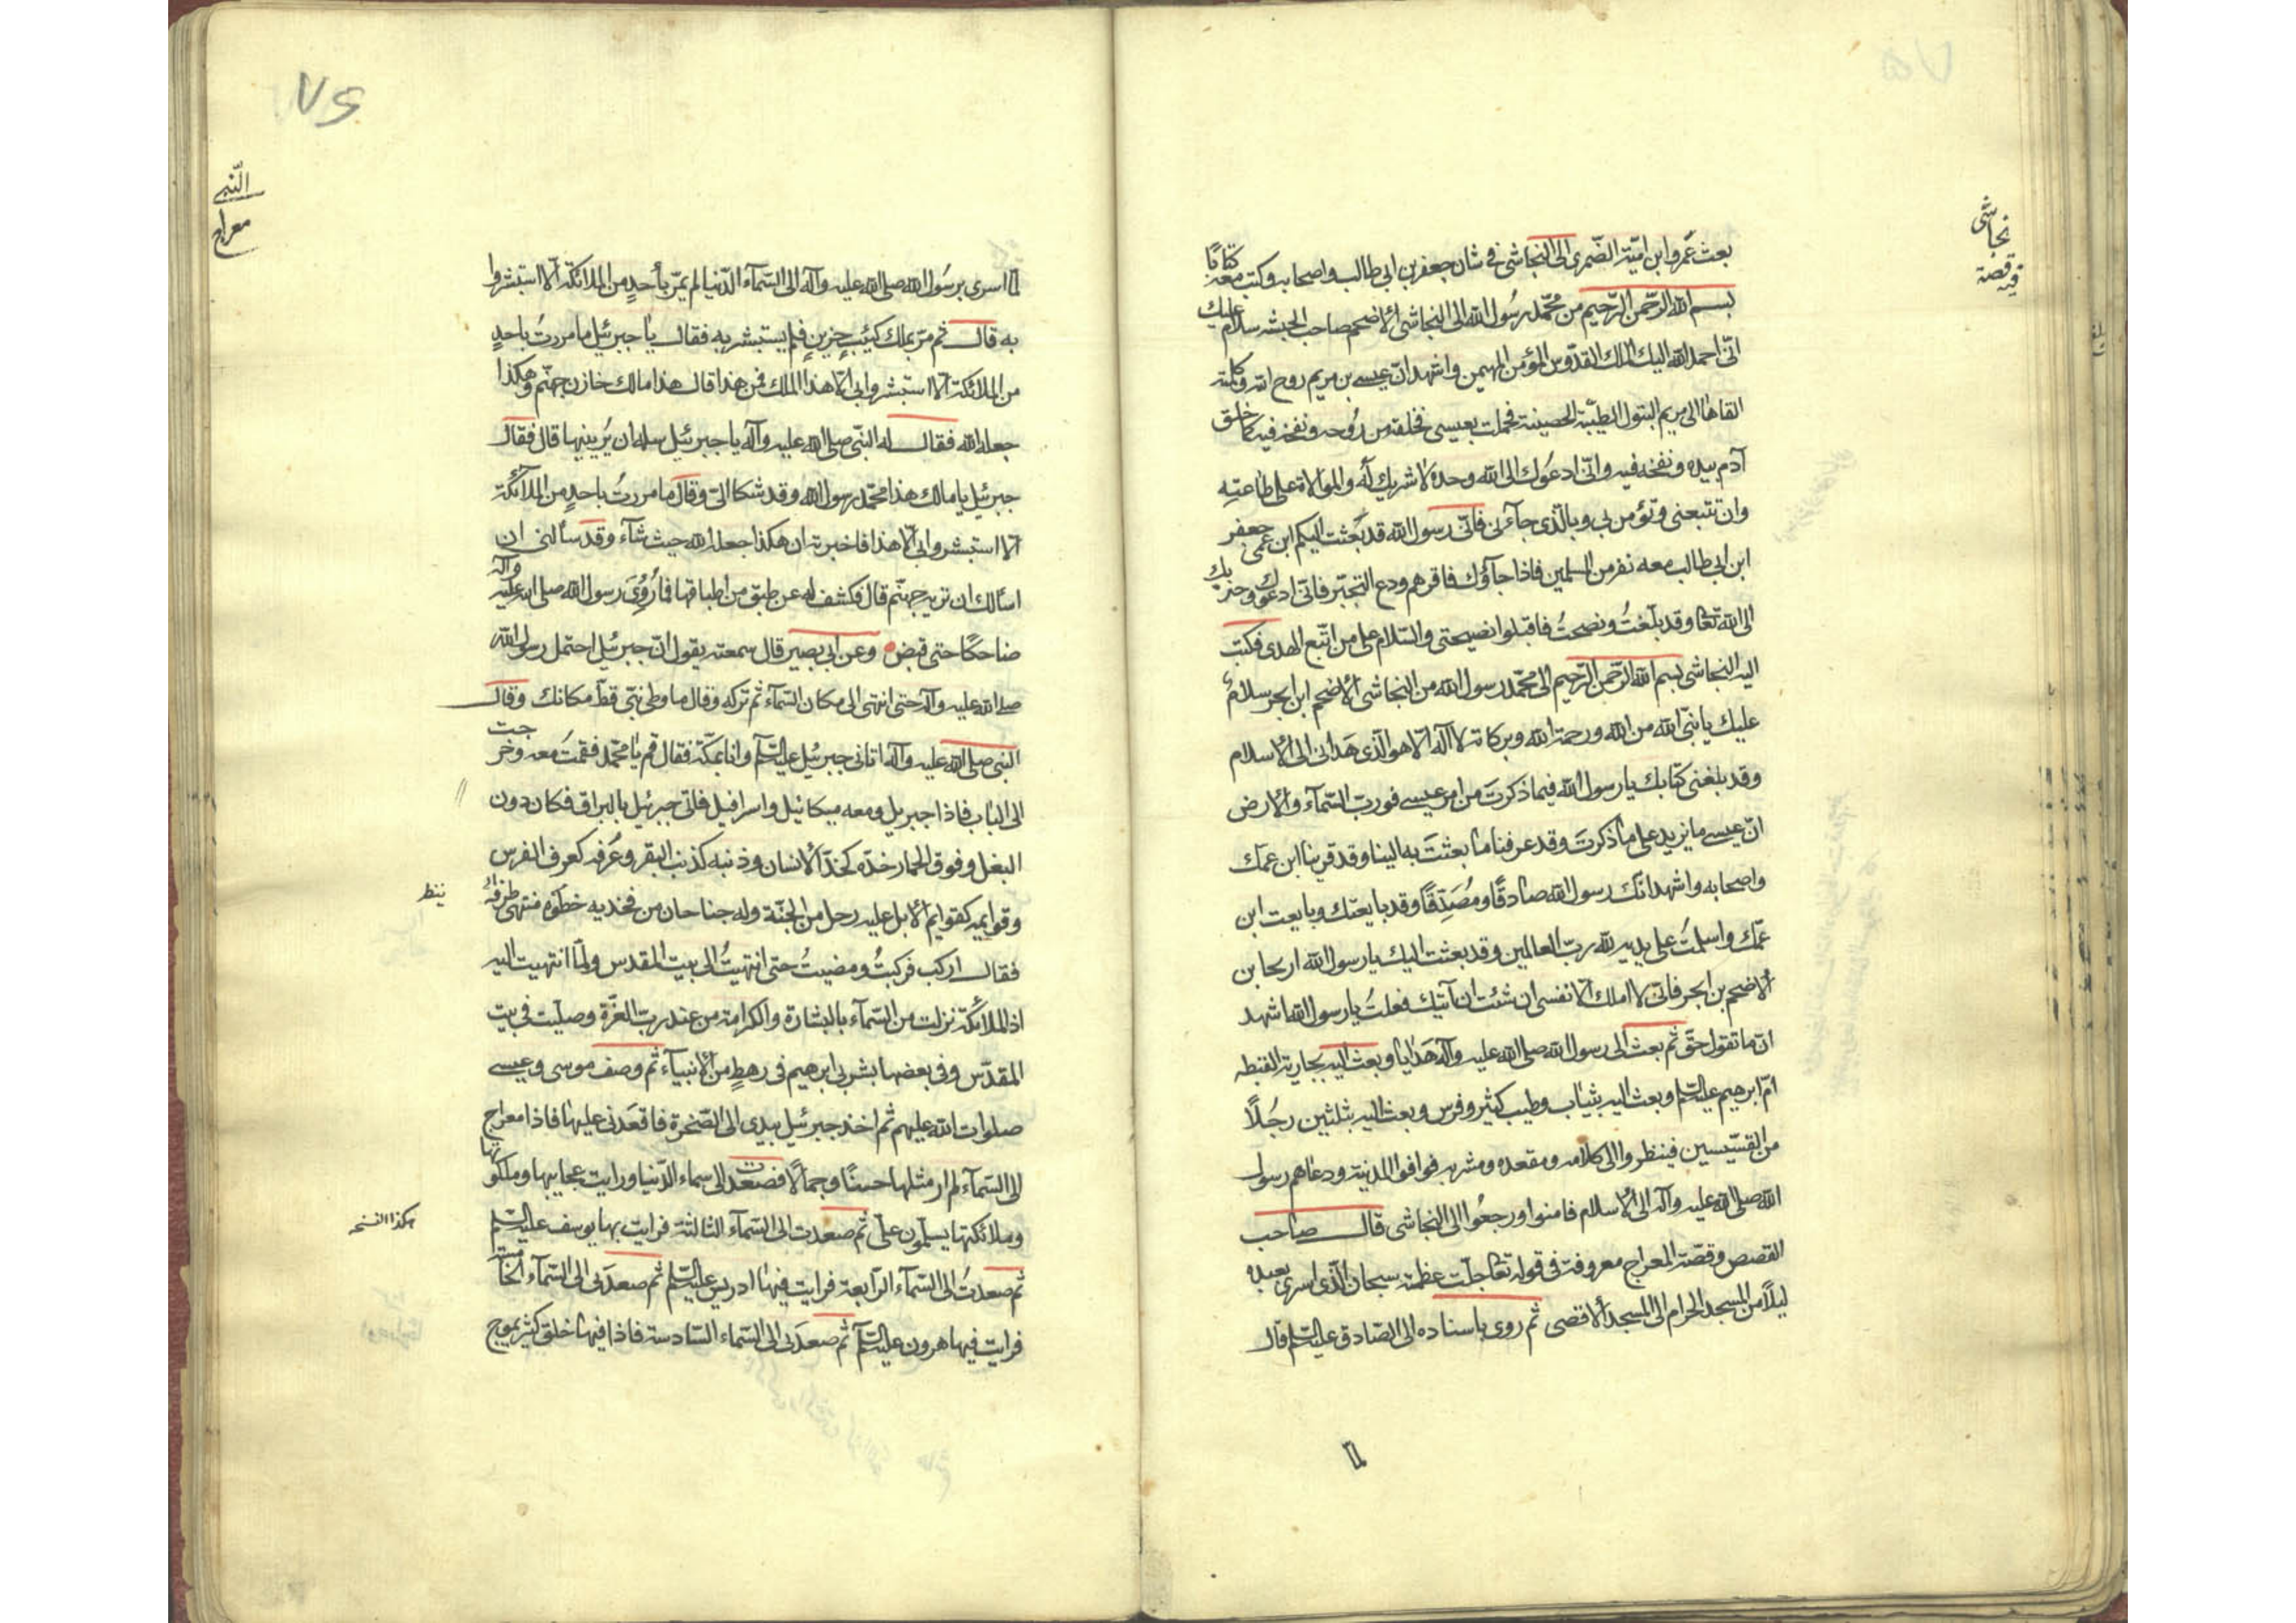 نجاشی
فیه قصة
بعث عمرو ابن امیّة الضّمری الی النجاشی فی شان جعفر بن ابی طالب و اصحابه و کتب معه کتابًا
بسم الله الرّحمن الرّحیم من محمّد رسُول الله الی النجاشی الاضحم صاحب الحبشه سلام علیك
انّی احمد الله الیك الملك القدّوس المؤمن المهیمن و اشهد انّ عیسی بن مریم روح الله و کلمته
القاها الی مریم البتول الطیّبة الحصینة فحملت بعیسی فخلقه من رُوحه و نفخه فیه کما خلق
آدم بیده و نفخه فیه و انّی ادعوك الی الله وحده لا شریك له و الموالاة علی طاعته
و ان تتبعنی و تؤمن بی و بالّذی جاءنی فانّی رسول الله قد بَعثت الیکم ابن عمّی جعفر
ابن ابی طالب معه نفر من المسلمین فاذا جآؤك فاقرهم ودع التجبّر فانّی ادعوك و جنودك
الی الله تعا و قد بلّغتُ و نصحتُ فاقبلوا نصیحتی و السّلام علی من اتّبع الهدی فکتب
الیه النجاشی بسم الله الرّحمن الرّحیم الی محمّد رسول الله من النجاشی الاضحم ابن ابجر سلامٌ
علیك یا نبّی الله من الله و رحمة الله و برکاته لا اله الّا هو الّذی هَدانی الی الاسلام
و قد بلغنی کتابك یا رسول الله فیما ذکرتَ من امر عیسی فوربّ السّمآء و الارض
انّ عیسی ما یزید علی ما ذکرتَ و قد عرفنا ما بعثتَ به الینا و قد قرینا ابن عمّك
و اصحابه و اشهد انّك رسول الله صادقًا و مُصَدِّقًا و قد بایعتك و بایعت ابن
عمّك و اسلمتُ علی یدیه لله ربّ العالمین و قد بعثت الیك یا رسول الله اریحا بن
الاضحم بن ابجر فانّی لا املك الّا نفسی ان شئت ان آتیك فعلتُ یا رسول الله اشهد
انّ ما تقول حقّ ثم بعث الی رسول الله صلی الله علیه و آله هَدایا و بعث الیه بجاریة القبطه
امّ ابرهیم علیه السّلم و بعث الیه بثیاب و طیب کثیر و فرس و بعث الیه بثلثین رجُلًا
من القسّیسین فینظروا الی کلامه و مقعده و مشربه فوافوا المدینة و دعاهم رسول
الله صلی الله علیه و آله الی الاسلام فامنوا و رجعُوا الی النجاشی قال صاحب
القصص و قصّة المعراج معروفة فی قوله تعا جلّت عظمته سبحان الّذی اسری بعبده
لیلاً من المسجد الحرام الی المسجد الاقصی ثم روی باسناده الی الصّادق علیه السّلم قال
لمّا
٧٥
النّبی
معراج
لمّا اسری برسُول الله صلی الله علیه و آله الی السّمآء الدّنیا لم یمرّ بأحدٍ من الملائکة الّا استبشروا
به قال ثم مرّ بملك کئیبٍ حزینٍ فلم یستبشر به فقال یا جبرئیل ما مررتُ باحدٍ
من الملائکة الّا استبشروا بی الّا هذا الملك فمن هذا قال هذا مالك خازن جهنّم و هکذا
جعله الله فقال له النبّی صلی الله علیه و آله یا جبرئیل سله ان یُرینیها قال فقال
جبرئیل یا مالك هذا محمّد رسول الله و قد شکا الیّ و قال ما مررتُ باحدٍ من الملآئکة
الّا استبشروا بی الّا هذا فاخبرته ان هکذا جعله الله حیث شآء و قد سألنی ان
اسألك ان تریه جهنّم قال فکشف له عن طبق من اطباقها فما رُؤِیَ رسول الله صلی الله علیه و آله
ضاحکًا حتی قبض و عن ابی بصیر قال سمعته یقول انّ جبرئیل احتمل رسول الله
صلی الله علیه و آله حتی انتهی الی مکان السّمآء ثم ترکه و قال ما وطی نبّی قطّ مکانك و قال
النبی صلی الله علیه و آله اتانی جبرئیل علیه السّلم و انا بمکّة فقال قم یا محمّد فقمت معه و خرجت
الی الباب فاذا جبریل و معه میکائیل و اسرافیل فاتی جبرئیل بالبراق فکان دون
البغل و فوق الحمار خدّه کخدّ الانسان و ذنبه کذنب البقر و عُرفه کعرف الفرس
و قوایمه کقوایم الابل علیه رحل من الجنّة و له جناحان من فخذیه خطوُه منتهی طرفه
ینظر
فقال ارکب فرکبتُ و مضیتُ حتی انتهیتُ الی بیت المقدس و لمّا انتهیت الیه
اذا الملائکة نزلت من السّمآء بالبشارة و الکرامة من عند ربّ العزّة و صلّیت فی بیت
المقدّس و فی بعضها بشر بی ابرهیم فی رهطٍ من الانبیآء ثم وصف موسی و عیسی
صلوات الله علیهم ثم اخذ جبرئیل بیدی الی الصّخرة فاقعَدنی علیها فاذا معراج
الی السّمآء لم ار مثلها حسنًا و جمالًا فصعدت الی سماء الدّنیا و رایت عجایبها و ملکوتها
و ملائکتها یسلّمون علیّ ثم صعدت الی السّمآء الثالثة فرایت بها یوسف علیه السّلم
هکذا النسخه
ثم صعدتُ الی السّمآء الرّابعة فرایت فیها ادریس علیه السّلم ثم صعدَنی الی السّمآء الخامسة
فرایت فیها هرون علیه السّلم ثم صعدَنی الی السّماء السّادسة فاذا فیها خلق کثیر یموج